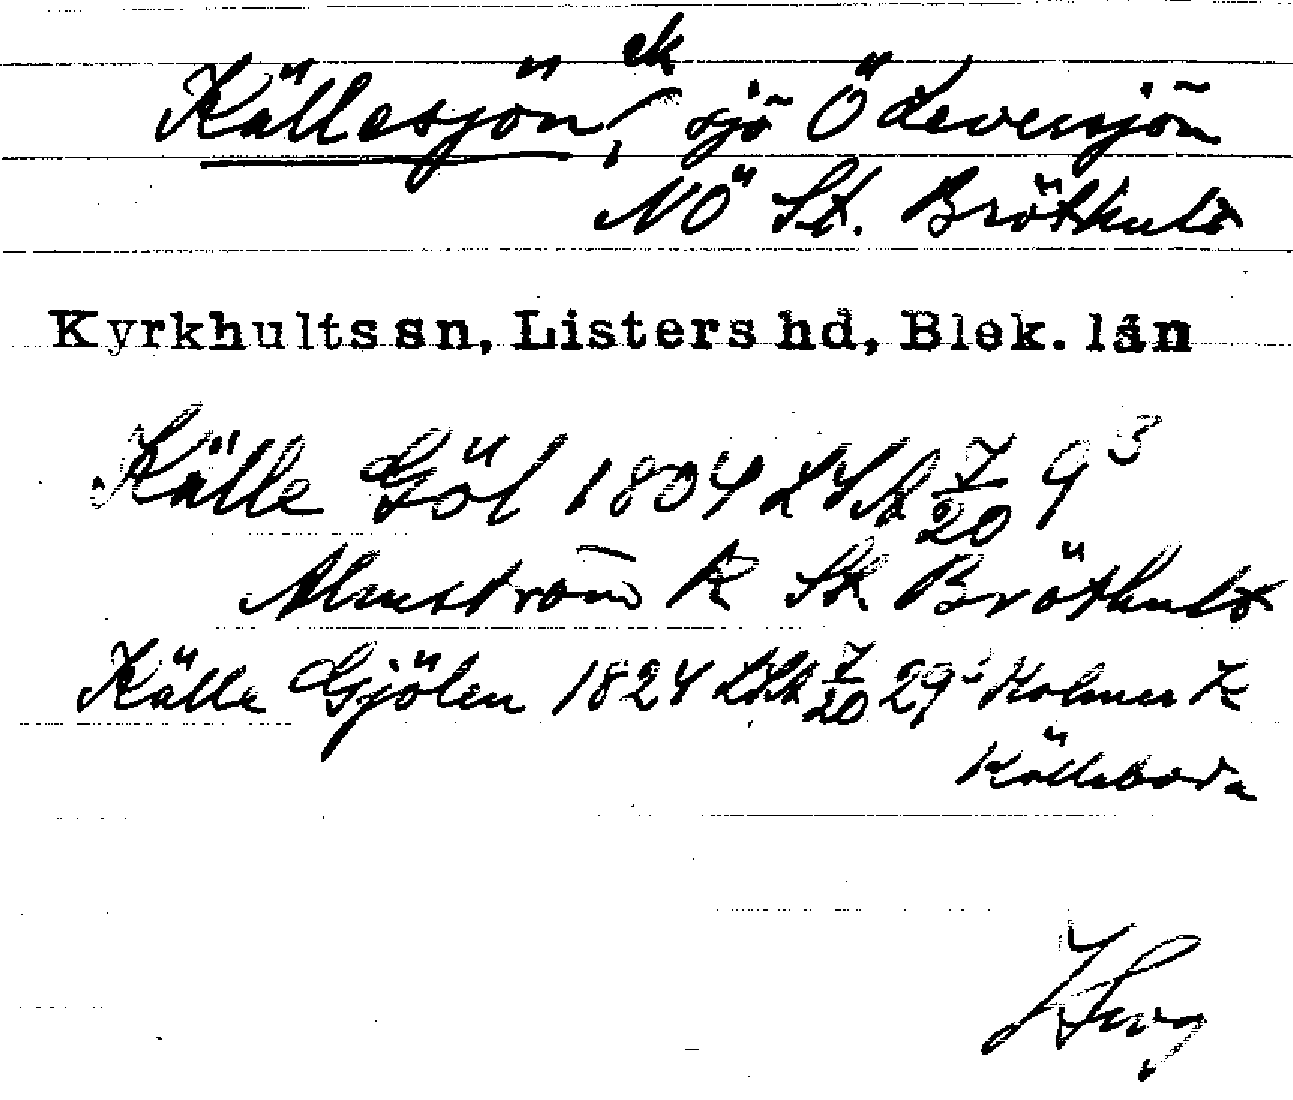 ek
Källesjön, sjö Ö Kevensjön
NÖ St. Bröthult
Kyrkhults sn, Listers hd, Blek. län
Källe Göl 1804 LSA 7/20 9³
Almström K St Bröthult
Källe Gjölen 1824 LSA 7/20 29 Holmer K
Källeboda